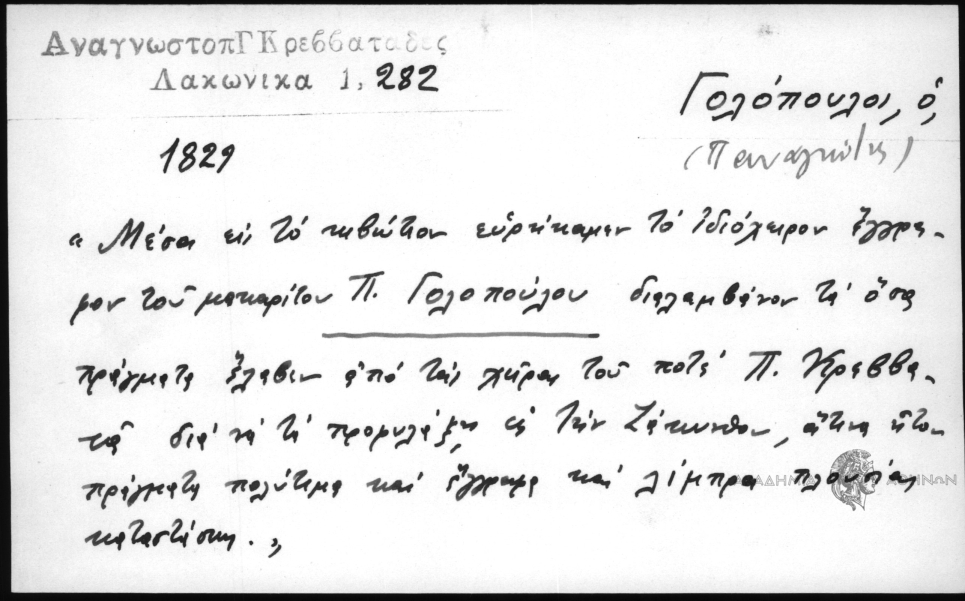 ΑναγνωστοπΓΚρεββαταδες
Λακωνικα 1, 282
Γολόπουλος, ὁ,
(Παναγιώτης)
1829
"Μέσα εἰς τό κιβώτιον εὑρήκαμεν τό ἰδιόχειρον ἔγγρα-
φον τοῦ μακαρίτου Π. Γολοπούλου διαλαμβάνον τά ὅσα
πράγματα ἔλαβεν ἀπό τάς χεῖρας τοῦ ποτέ Π. Κρεββα-
τᾶ διά νά τά προφυλάξῃ εἰς τήν Ζάκυνθον, ἅτινα ἦτον
πράγματα πολύτιμα καί ἔγγραφα καί λίμπρα πλουσίας
καταστάσεως."
ΑΚΑΔΗΜΙΑ ΑΘΗΝΩΝ